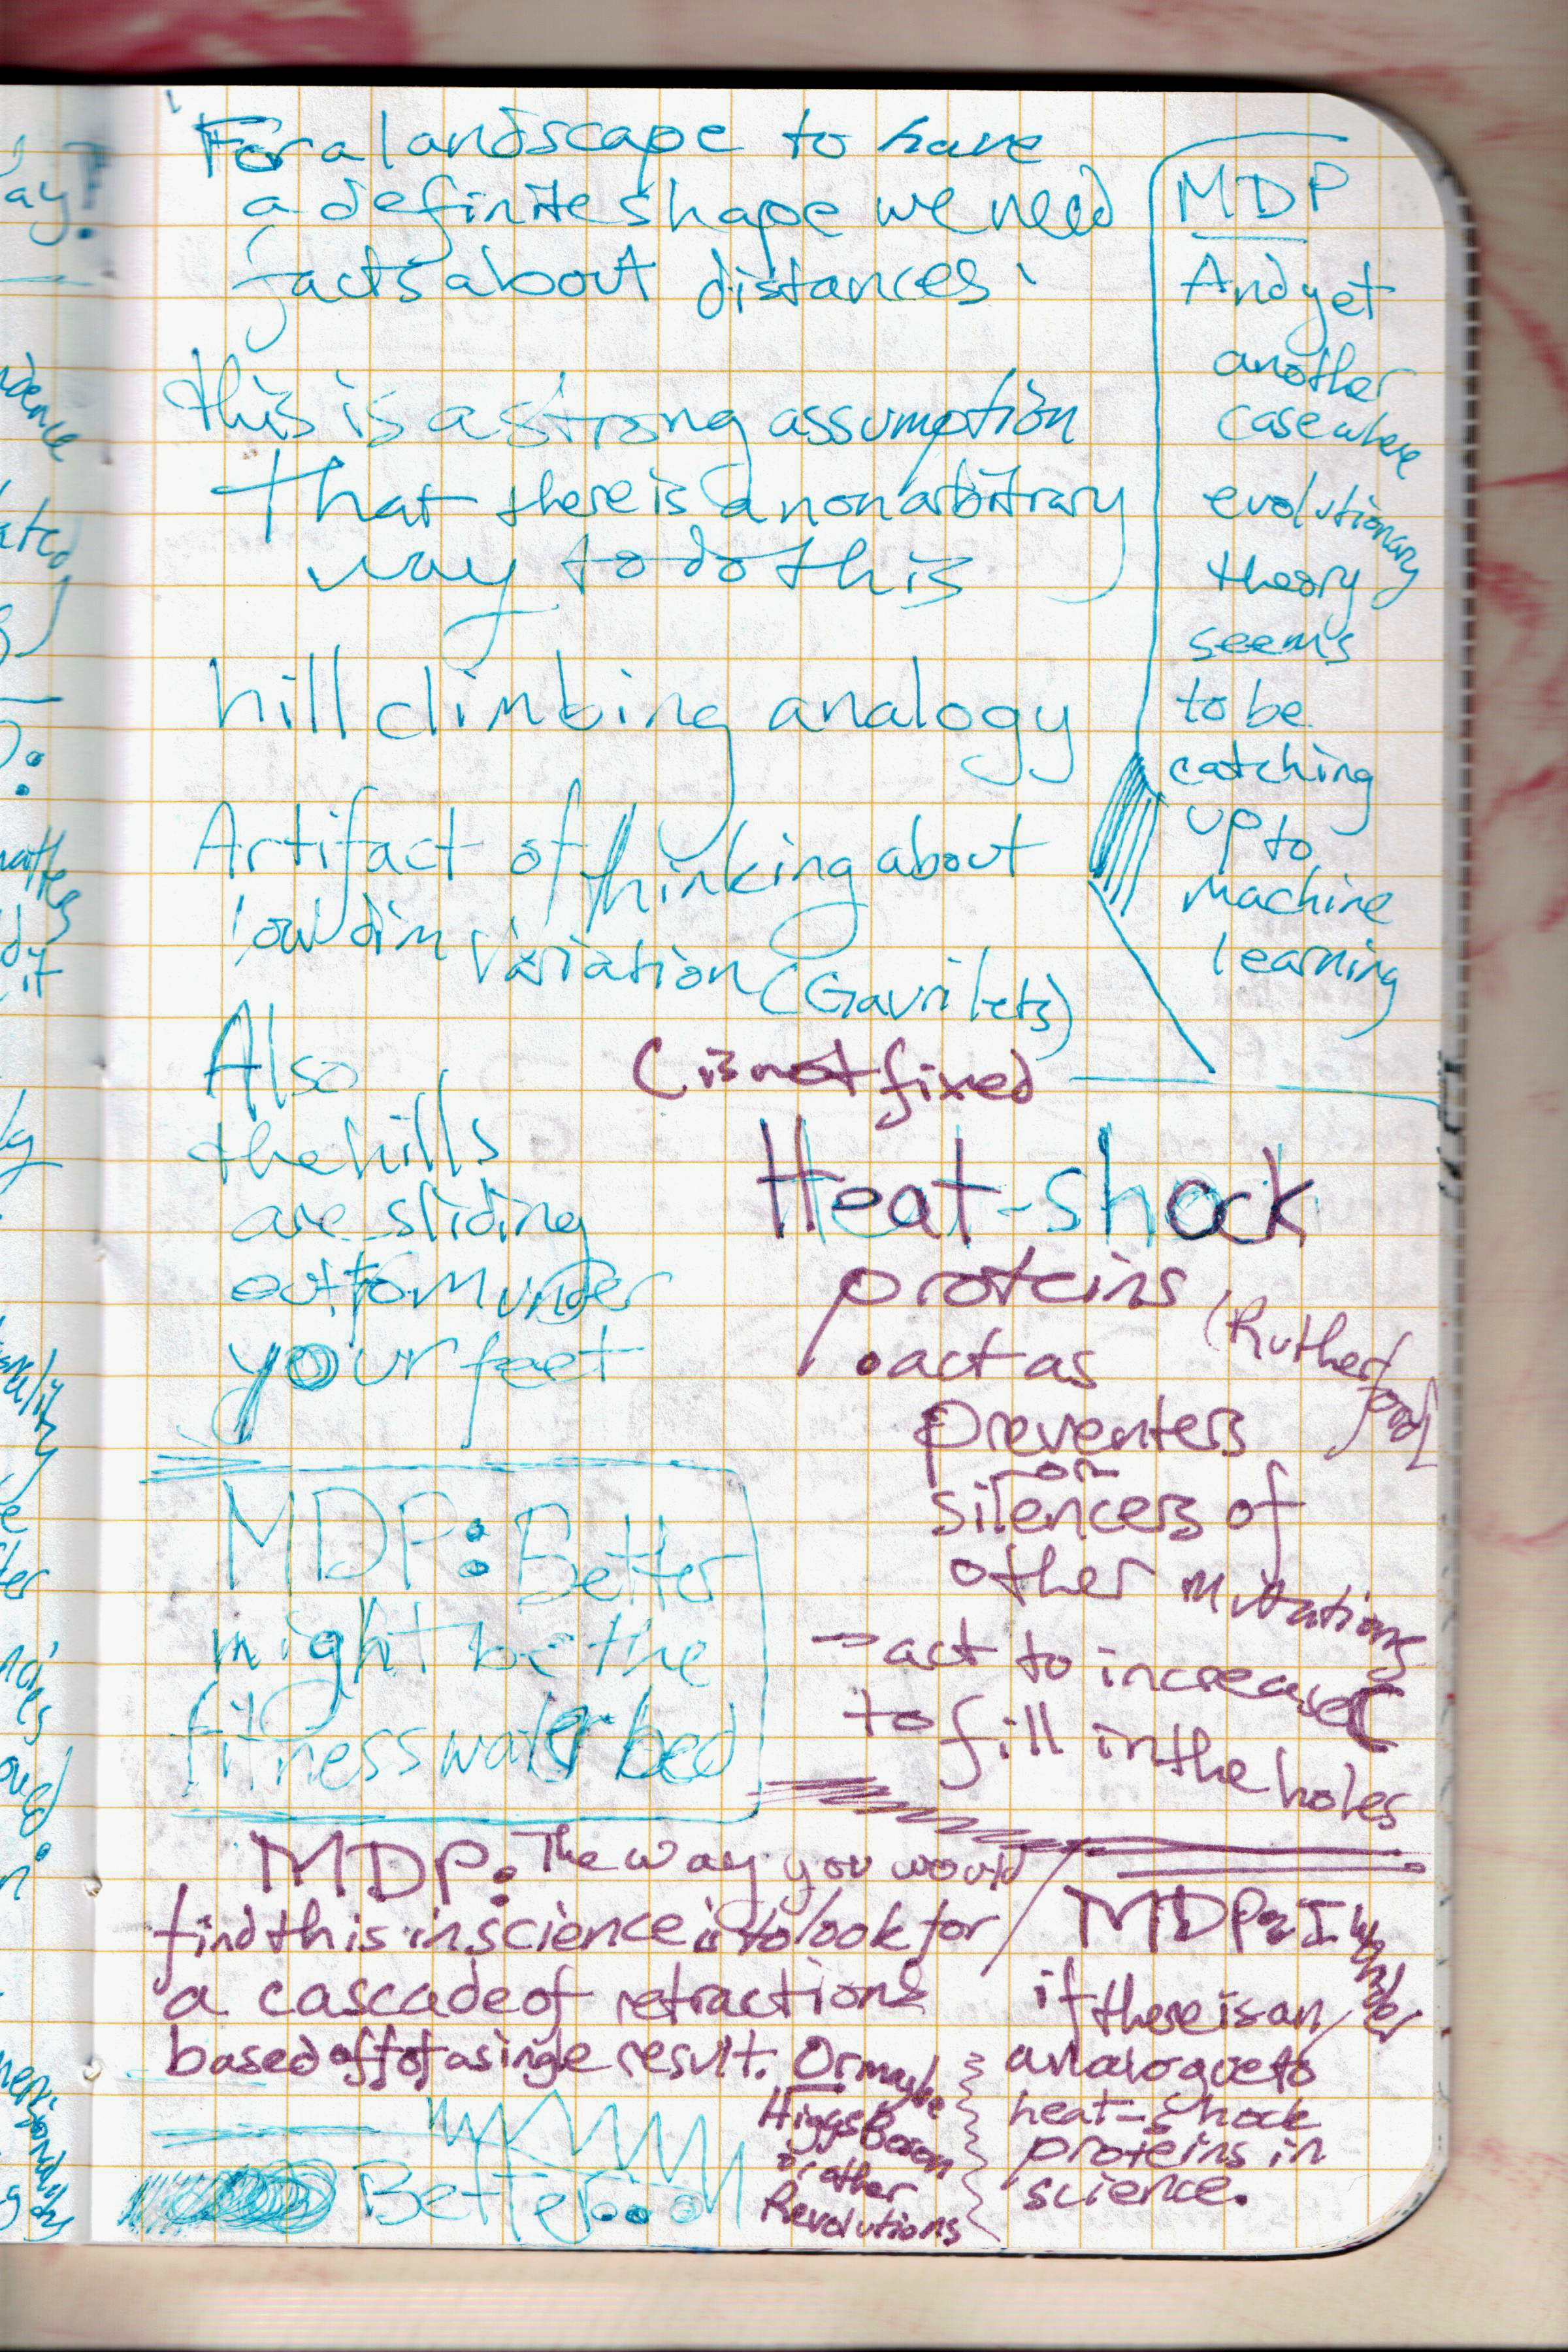 For a landscape to have
a definite shape we need
facts about distances.
this is a strong assumption
That there is a nonarbitrary
way to do this
hill climbing analogy
Artifact of thinking about
low dim variation (Gavrilets)
Also
the hills
are sliding
out from under
your feet
MDP
And yet
another
case where
evolutionary
theory
seems
to be
catching
up to
machine
learning
(is not fixed
Heat-shock
proteins
(Rutherford)
• act as
preventers
or
silencers of
other mutations
- act to increase
to fill in the holes
MDP: Better
might be the
fitness water bed
MDP: The way you would
find this in science is to look for
a cascade of retractions
based off of a single result. Or maybe
Higgs Boson
or other
Revolutions
MDP: I wonder
if there is an
analogue to
heat-shock
proteins in
science.
Better...